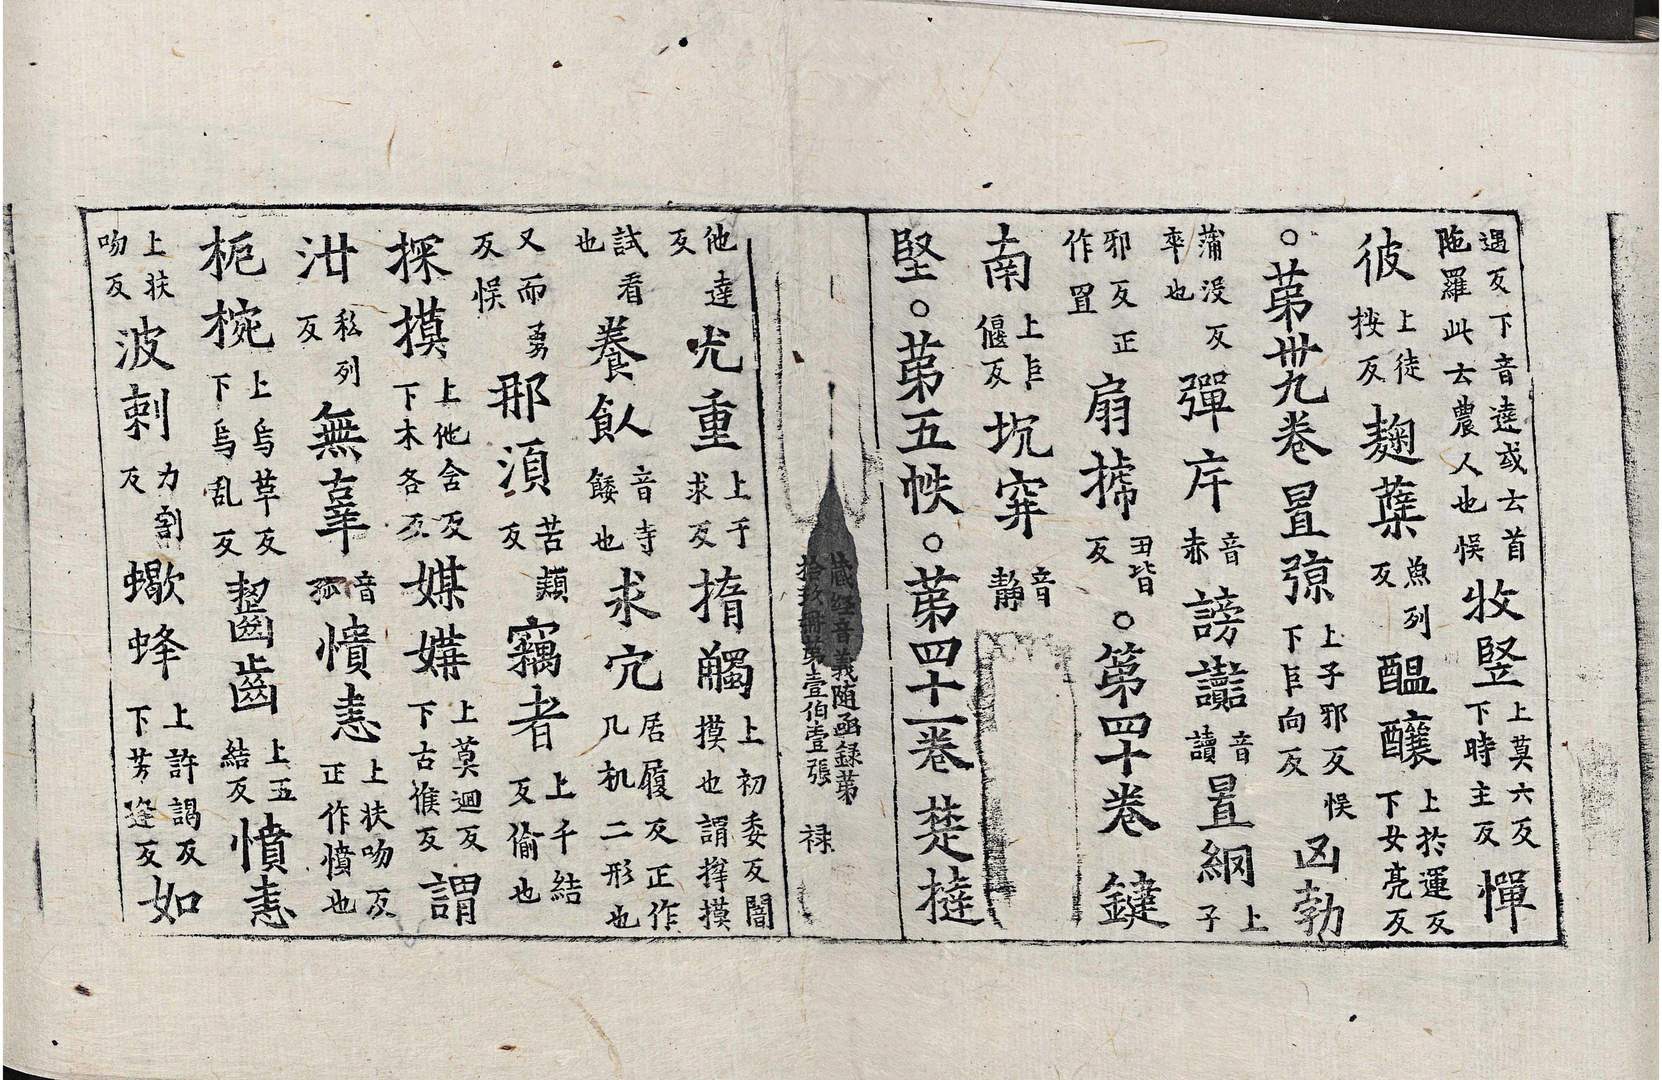 遇反下音達或云首陁羅此云農人也悮牧竪上莫六反下時主反憚
彼上徒按反麹蘖魚列反醖釀上於運反下女亮反
○苐卅九卷罝弶上子邪反悮下巨向反凶勃
蒲没反卒也彈斥音赤謗讟音讀罝網上子
邪反正作罝扇搋丑皆反○苐四十卷鍵
南上巨偃反坑穽音静
堅○苐五帙○苐四十一卷楚撻
藏經音義随函録苐
拾玖册苐壹伯壹張 禄
他達反尤重上于求反揣觸上初委反闇摸也謂揣摸
試看也養飤音寺餧也求宂居履反正作几机二形也
又而勇反悮那湏苦頪反竊者上千結反偷也
探摸上他含反下木各反媒媾上莫迴反下古候反謂
泄私列反無辜音孤憤恚上扶吻反正作憤也
枙椀上烏草反下烏乱反齧齒上五結反憤恚
上扶吻反波剌力割反蠍蜂上許謁反下芳逢反如